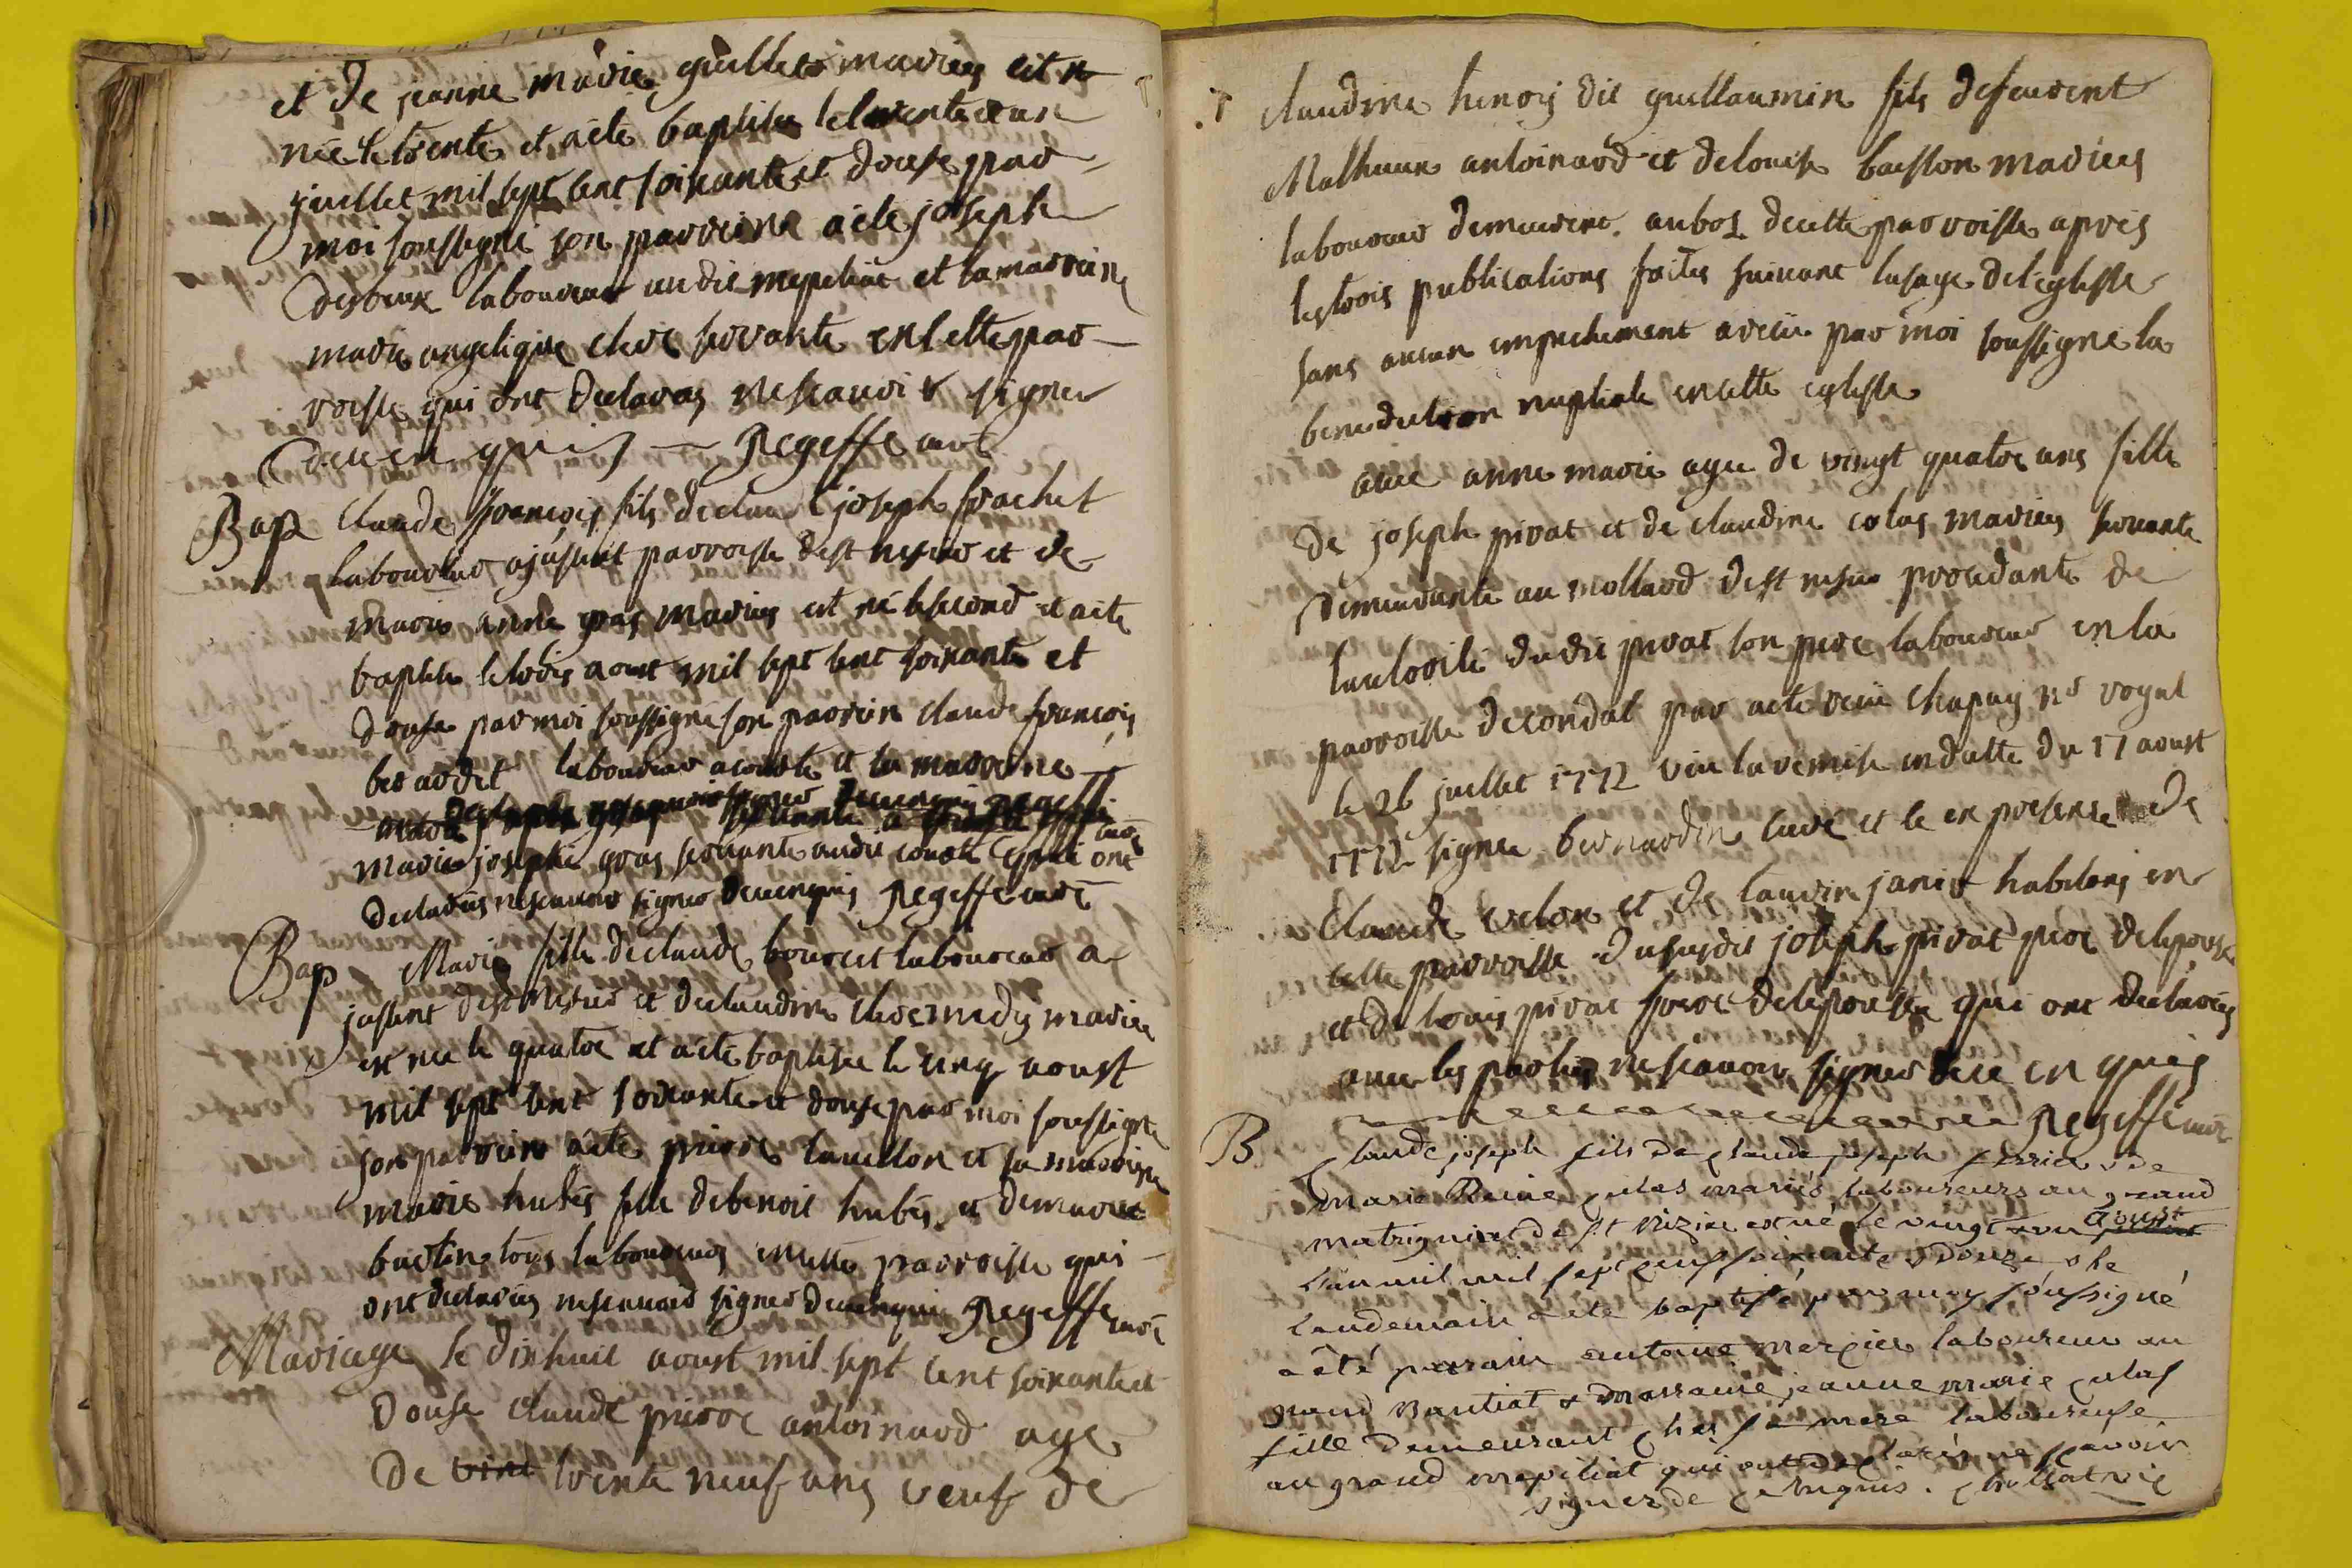 et de jeanne marie guillet mariés est
née le trente et a été baptisée le trente et un
juillet mil sept cent soixante et douse par
moi soussigné son parrein a été joseph
laboureur audit mepiliat et la marreine
marie angelique clere servante en cette par-
roisse qui ont declarés ne scauoir signer
de ce enquis Regeffe curé
Bap Claude François fils de claude joseph frachet
laboureur a jussent parroisse de st nesier et de
marie anne gras mariés est né le second et a été
baptisé le trois aoust mil sept cent soixante et
douse par moi soussigné son parrein claude françois
berardet laboureur a conste et la marreine
marie josephe gras servante audit conste qui ont
declarés ne scauoir signer de ce enquis Regeffe curé
Bap Marie fille de claude bourcet laboureur a
jussent de st nesier et de claudine cheremedy mariés
est née le quatre et a été baptisée le cinq aoust
mil sept cent soixante et douse par moi soussigné
son parrein a été pierre cauillon et sa marreine
marie hubés fille de benoit hubés et de marie
tous laboureurs en cette parroisse qui
ont declarés ne scauoir signer de ce enquis Regeffe curé
Mariage le dixhuit aoust mil sept cent soixante et
douse claude pierre antoinard age
de vint trente neuf ans veuf de
claudine henoy dit guillaumin fils de feu vincent
Mathieu antoinard et de louise baisson mariés
laboureur demeurent au bos de cette parroisse apres
les trois publications faites suivant l'usage de l'eglisse
sans aucun empechement a reçu par moi soussigné la
benediction nuptiale en cette eglisse
avec anne marie agee de vingt quatre ans fille
de joseph pivat et de claudine colas mariés servante
demeurante au mollard de st nesier procedante de
l'autorité dudit pivat son pere laboureur en la
parroisse de condal par acte reçu chapuy nre royal
le 26 juillet 1772 veu la remise en datte du 17 aoust
1772 signée bernardin curé et ce en presense de
claude velon et de laurin janin habitans en
cette parroisse du susdit joseph pivat pere de l'epouse
et de louis pivat frere de l'epouse qui ont declarés
avec les parties ne scauoir signer de ce en quis
Regeffe curé
B Claude joseph fils de claude joseph ferrier & de
marie Reine culas mariés laboureurs au grand
matrigniat de st nizier est né le vingt un aoust
l'an mil mil sept cens soixante & douze & le
landemain a eté baptisé par moy soussigné
a été parrain antoine mercier laboureur au
grand vantiat & marraine jeanne marie culas
fille demeurant chés sa mere laboureuse
au grand mepiliat qui ont declarés ne sçavoir
signer de ce enquis. chollat vic